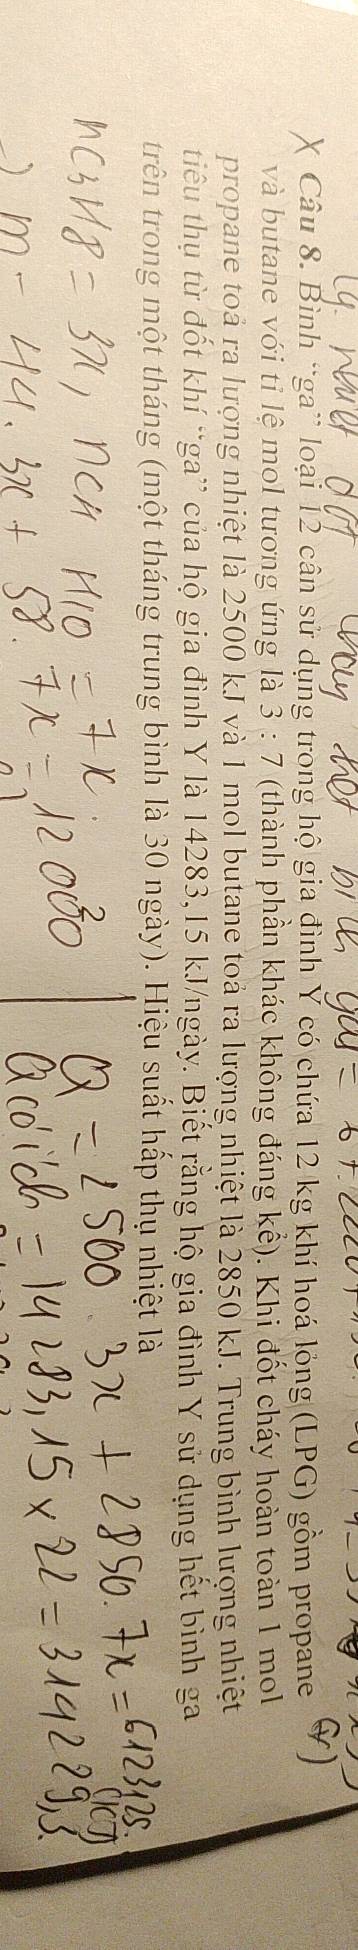 X Câu 8. Bình “ga” loại 12 cân sử dụng trong hộ gia đình Y có chứa 12 kg khí hoá lỏng (LPG) gồm propane
và butane với tỉ lệ mol tương ứng là 3 : 7 (thành phần khác không đáng kể). Khi đốt cháy hoàn toàn 1 mol
propane toả ra lượng nhiệt là 2500 kJ và 1 mol butane toả ra lượng nhiệt là 2850 kJ. Trung bình lượng nhiệt
tiêu thụ từ đốt khí “ga” của hộ gia đình Y là 14283,15 kJ/ngày. Biết rằng hộ gia đình Y sử dụng hết bình ga
trên trong một tháng (một tháng trung bình là 30 ngày). Hiệu suất hấp thụ nhiệt là
nC3H8 = 3x, nC4H10 = 7x
Q = 2500. 3x + 2850. 7x = 612312S
=) m = 44. 3x + 58. 7x = 12000
Q có ích = 14283,15 x 22 = 314229,3